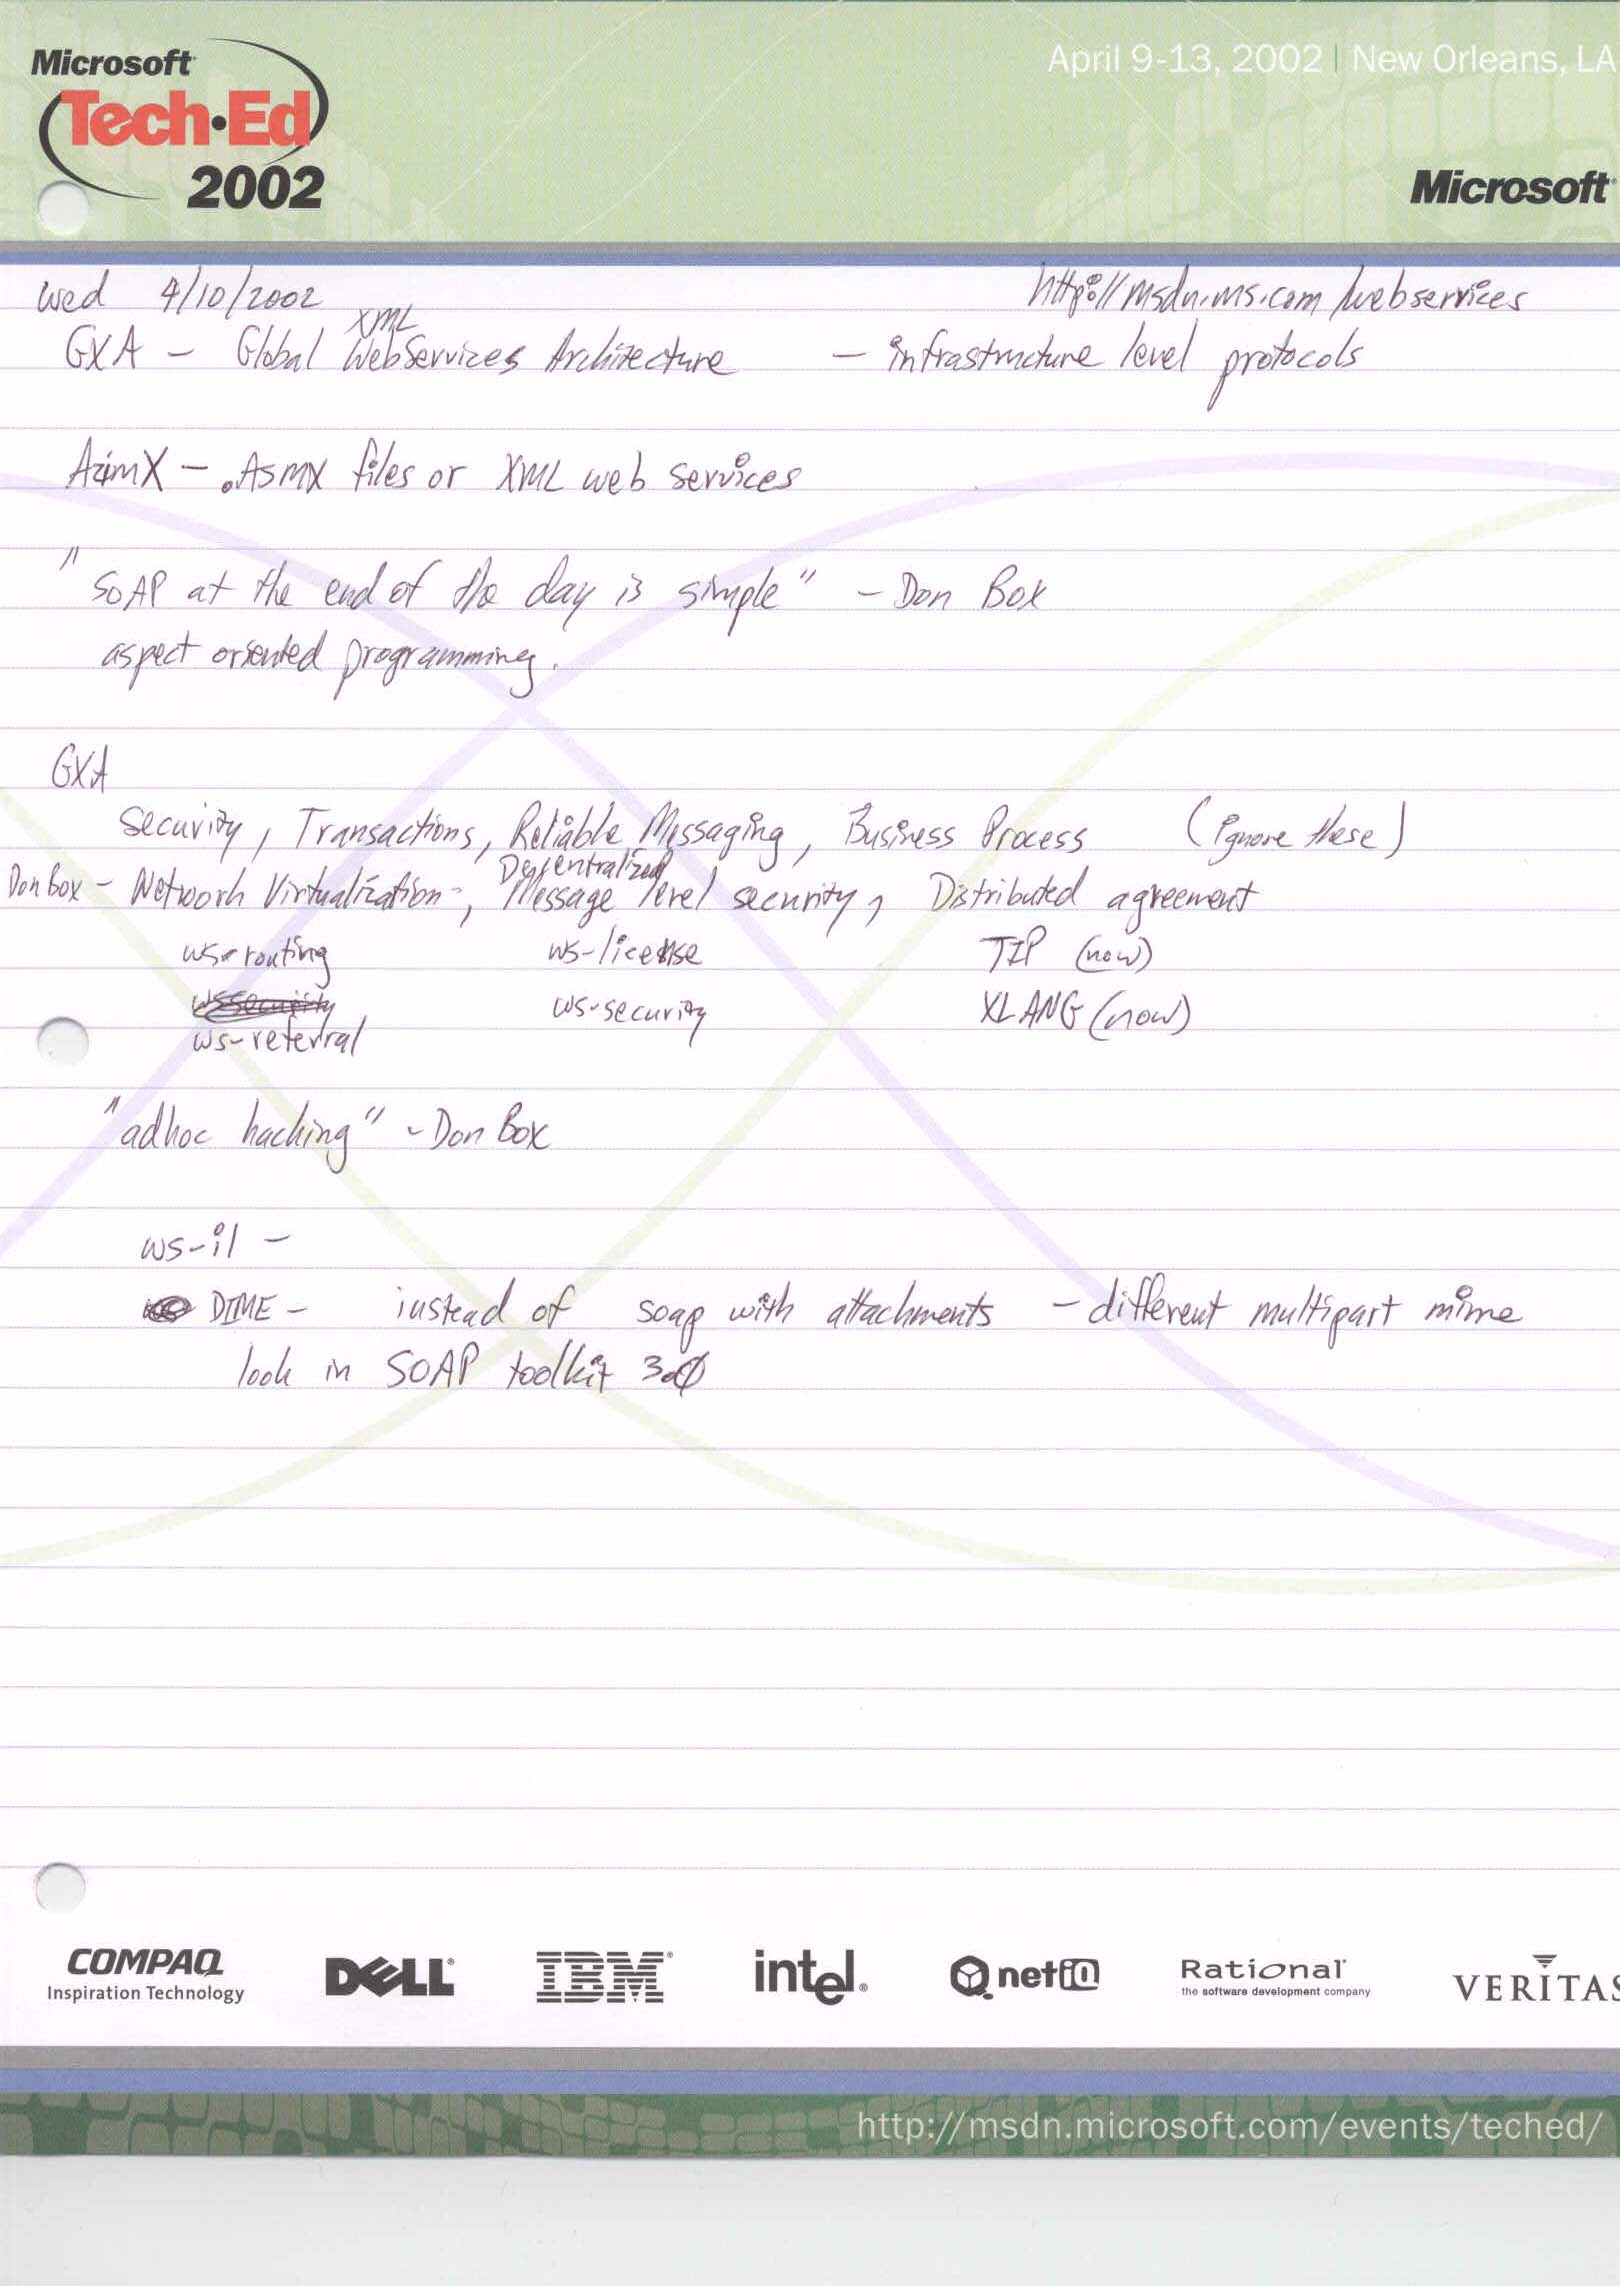 Microsoft
Tech·Ed
2002
April 9-13, 2002 | New Orleans, LA
Microsoft
wed 4/10/2002 http://msdn.ms.com/webservices
XML
GXA - Global WebServices Architecture - infrastructure level protocols
AzimX - .ASMX files or XML web services
"SOAP at the end of the day is simple" - Don Box
aspect oriented programming.
GXA
Security, Transactions, Reliable Messaging, Business Process (ignore these)
Decentralized
Don Box - Network Virtualization-, Message level security, Distributed agreement
ws-routing ws-license TIP (now)
ws-security XLANG (now)
ws-referral
"adhoc hacking" - Don Box
ws-il -
DIME - instead of soap with attachments - different multipart mime
look in SOAP toolkit 3.0
COMPAQ DELL IBM intel. netiQ Rational VERITAS
Inspiration Technology the software development company
http://msdn.microsoft.com/events/teched/